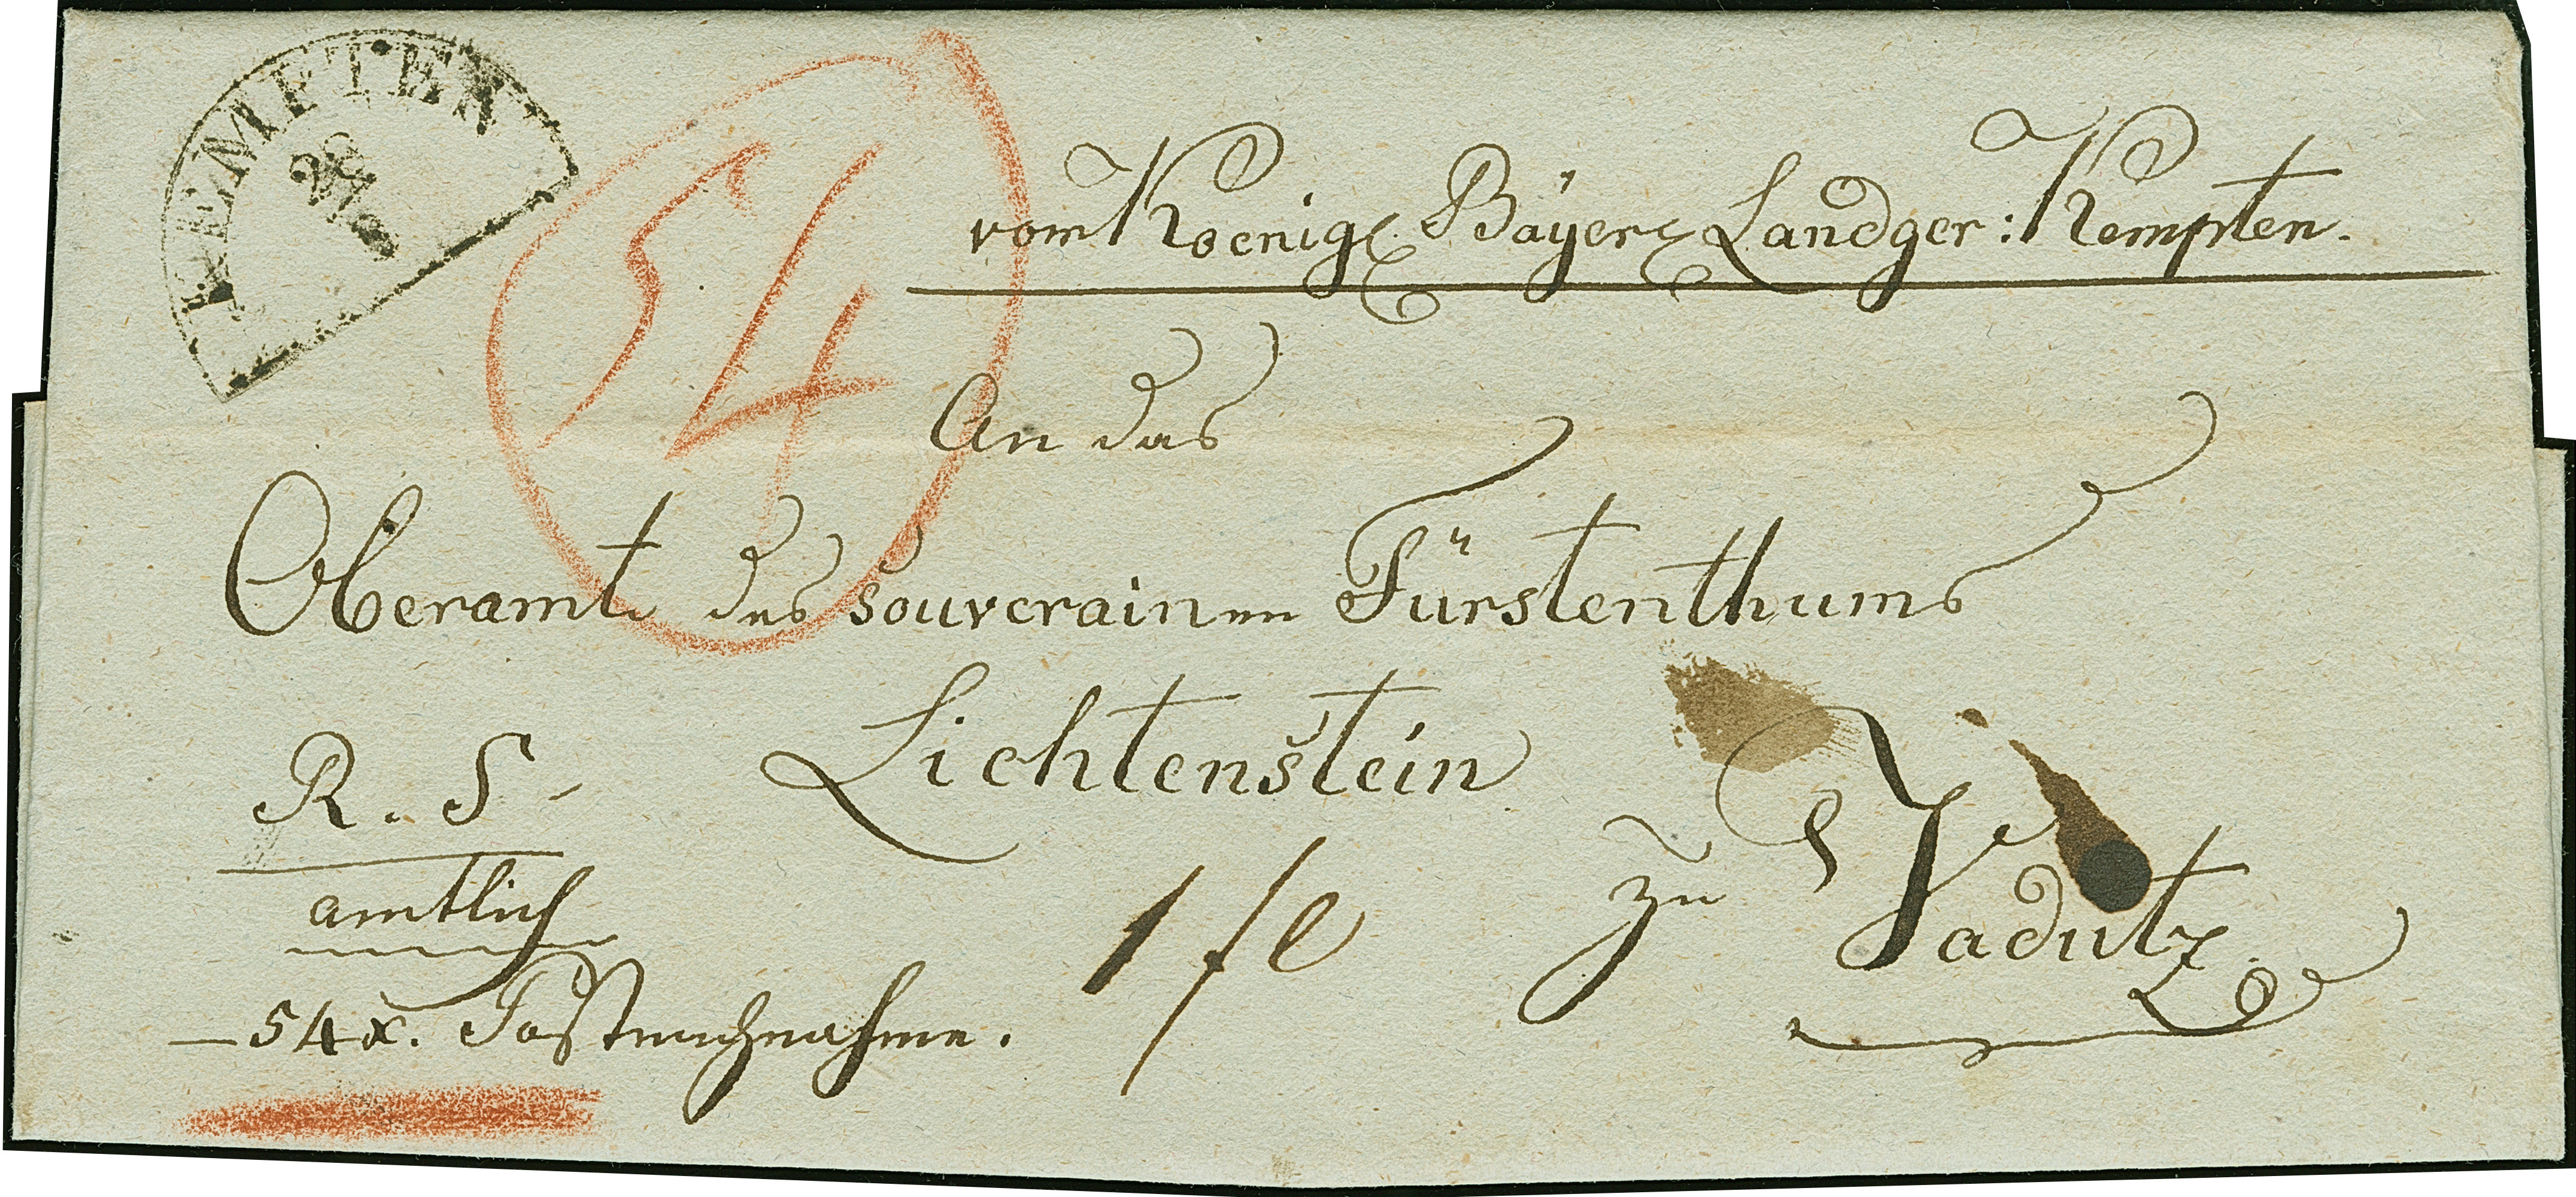 KEMPTEN
54
vom Koenigl. Bayer. Landger: Kempten.
An das
Oberamt des souverainen Fürstenthums
Lichtenstein
R. S
zu Vadutz
amtlich
1 fl
54 x. Postnachnahme.